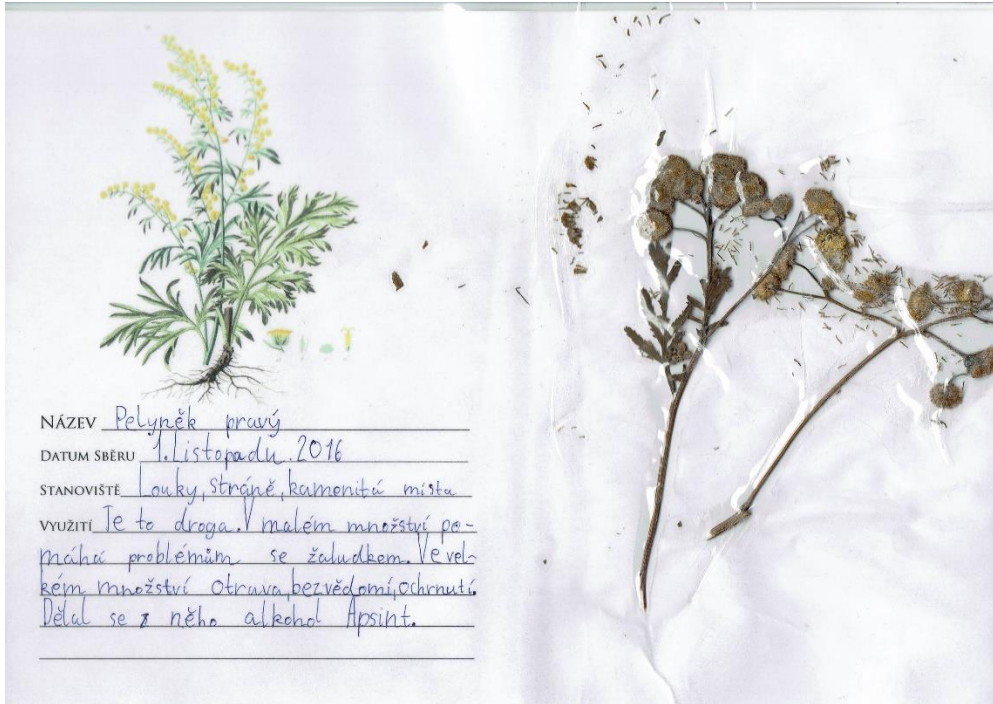 NÁZEV Pelyněk pravý
DATUM SBĚRU 1. Listopadu. 2016
STANOVIŠTĚ Louky, stráně, kamenitá místa
VYUŽITÍ Je to droga. V malém množství po-
máhá problémům se žaludkem. Ve vel-
kém množství otrava, bezvědomí, ochrnutí.
Dělal se z něho alkohol Apsint.